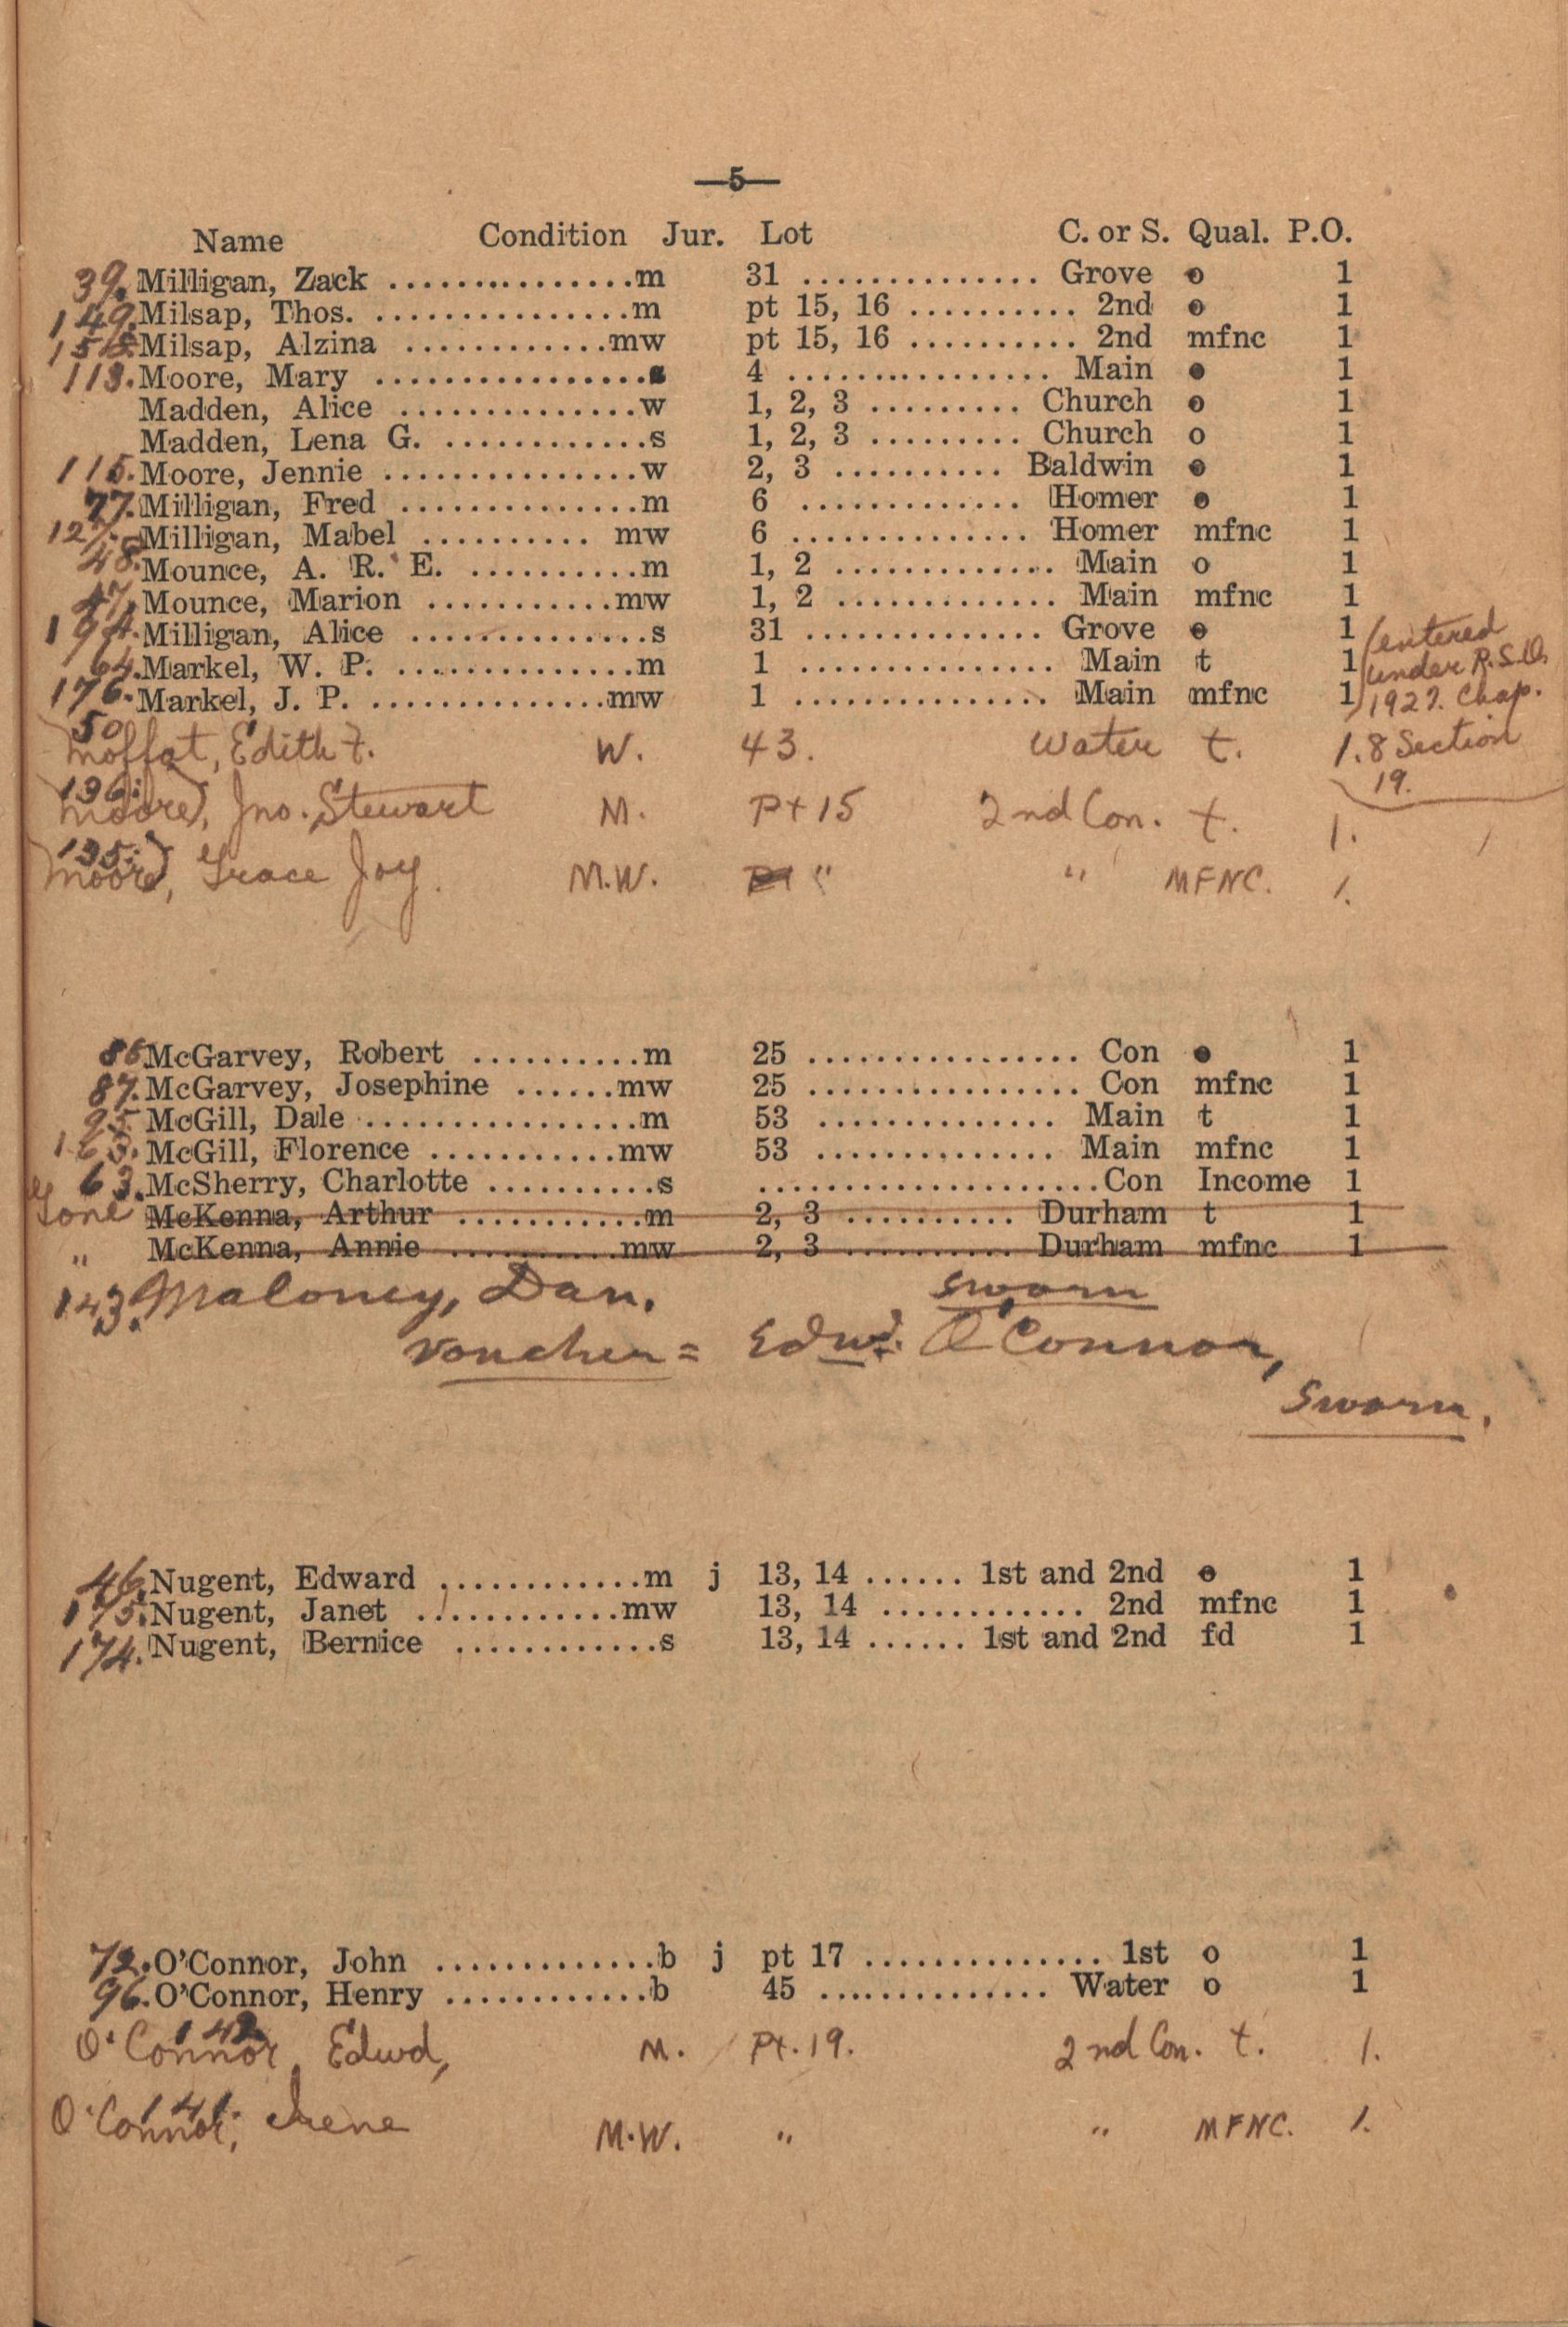 —5—
Name Condition Jur. Lot C. or S. Qual. P.O.
39. Milligan, Zack ................m 31 ............... Grove o 1
149. Milsap, Thos. ................m pt 15, 16 .......... 2nd o 1
Milsap, Alzina ............mw pt 15, 16 .......... 2nd mfnc 1
113. Moore, Mary .................s 4 ................ Main o 1
Madden, Alice ...............w 1, 2, 3 ......... Church o 1
Madden, Lena G. .............s 1, 2, 3 ......... Church o 1
115. Moore, Jennie ................w 2, 3 .......... Baldwin o 1
77. Milligan, Fred ...............m 6 ............. Homer o 1
Milligan, Mabel .......... mw 6 .............. Homer mfnc 1
48. Mounce, A. R. E. ...........m 1, 2 ............. Main o 1
47. Mounce, Marion ............mw 1, 2 ............. Main mfnc 1
194. Milligan, Alice ...............s 31 ............... Grove o 1 (entered
64. Markel, W. P. ................m 1 ................ Main t 1 under R.S.O.
176. Markel, J. P. ...............mw 1 ................ Main mfnc 1 1927. Chap.
50 Moffat, Edith F. W. 43. Water t. 1. 8 Section
19.
136. Moore, Jno. Stewart M. Pt 15 2nd Con. t. 1.
135. Moore, Grace Joy. M.W. " " MFNC. 1.
86 McGarvey, Robert ..........m 25 ................. Con o 1
87. McGarvey, Josephine ......mw 25 ................. Con mfnc 1
95. McGill, Dale .................m 53 .............. Main t 1
McGill, Florence ...........mw 53 .............. Main mfnc 1
63. McSherry, Charlotte ..........s .....................Con Income 1
Gone McKenna, Arthur ...........m 2, 3 .......... Durham t 1
" McKenna, Annie ..........mw 2, 3 .......... Durham mfnc 1
143. Maloney, Dan. sworn
voucher = Edwd. O'Connor,
Sworn.
46. Nugent, Edward ............m j 13, 14 ...... 1st and 2nd o 1
175. Nugent, Janet ............mw 13, 14 ............ 2nd mfnc 1
174. Nugent, Bernice ............s 13, 14 ...... 1st and 2nd fd 1
72. O'Connor, John .............b j pt 17 ............... 1st o 1
96. O'Connor, Henry ............b 45 ............... Water o 1
142 O'Connor, Edwd, M. Pt. 19. 2nd Con. t. 1.
141. O'Connor, Irene M.W. " " MFNC. 1.